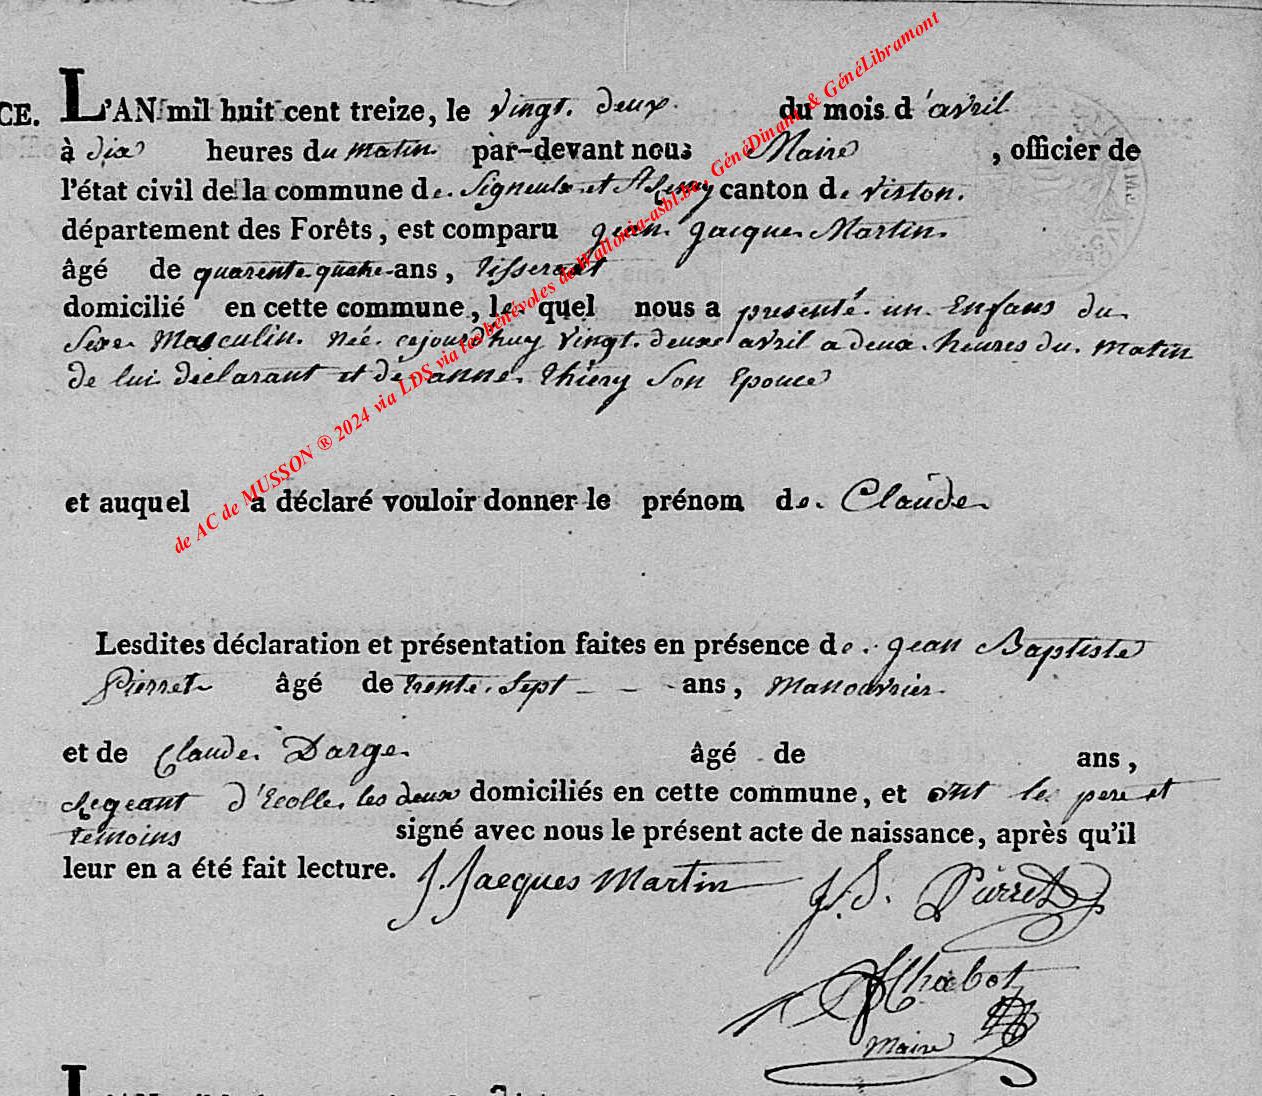 CE. L'AN mil huit cent treize, le vingt. deux. du mois d'avril
à dix heures du matin par-devant nous Maire , officier de
l'état civil de la commune de Signeulx et St Remy canton de virton.
département des Forêts, est comparu jean jacques Martin.
âgé de quarente quatre ans, tisserant
domicilié en cette commune, le quel nous a presenté un Enfans du
Sexe Masculin. née cejourdhuy vingt. deux avril a deux heures du matin
de lui déclarant et de anne thiery Son Epouce
et auquel a déclaré vouloir donner le prénom de Claude
Lesdites déclaration et présentation faites en présence de jean Baptiste
Pierret âgé de trente. sept - - - ans, manouvrier.
et de Claude Darge âgé de ans,
Regeant d'Ecolle les deux domiciliés en cette commune, et ont le pere et
temoins signé avec nous le présent acte de naissance, après qu'il
leur en a été fait lecture. J. Jacques Martin J. B. Pierret
Chabot
maire
de AC de MUSSON ® 2024 via LDS via les bénévoles de Wallonia-asbl.be, GénéDinant & GénéLibramont